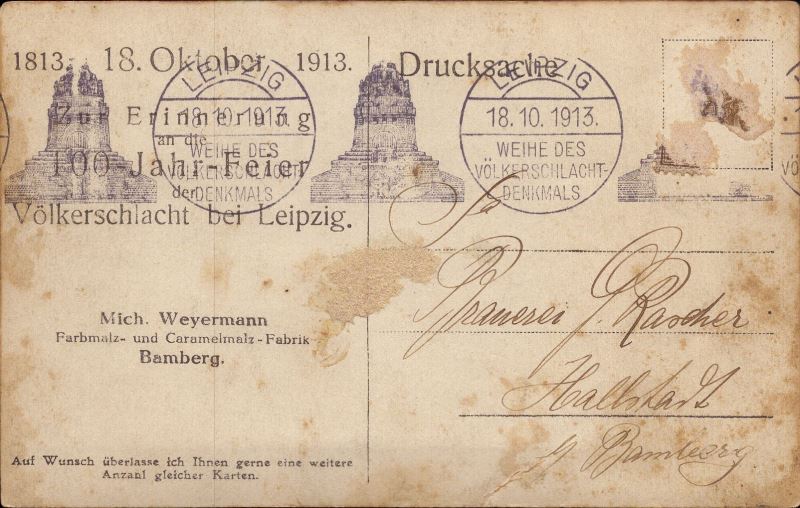 1813. 18. Oktober 1913.
Zur Erinnerung
an die
100-Jahr-Feier
der
Völkerschlacht bei Leipzig.
LEIPZIG
18.10.1913.
WEIHE DES
VÖLKERSCHLACHT-
DENKMALS
Drucksache
LEIPZIG
18.10.1913.
WEIHE DES
VÖLKERSCHLACHT-
DENKMALS
Mich. Weyermann
Farbmalz- und Caramelmalz-Fabrik
Bamberg.
Auf Wunsch überlasse ich Ihnen gerne eine weitere
Anzahl gleicher Karten.
Brauerei G. Rascher
Hallstadt
Bamberg